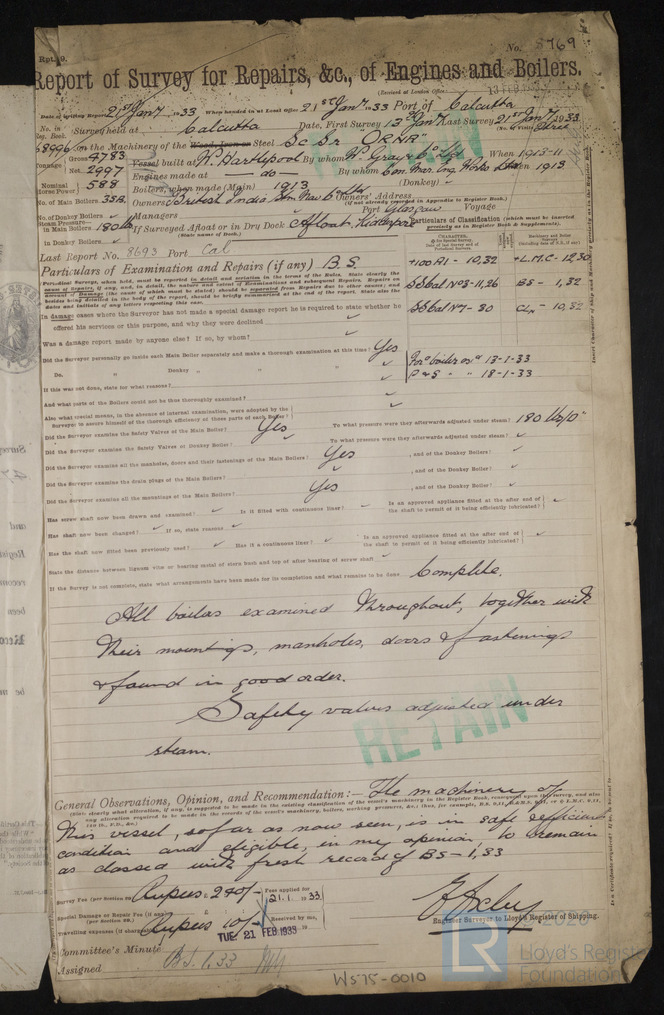 Rpt. 9.
No. 5769
Report of Survey for Repairs, &c., of Engines and Boilers.
(Received at London Office
13 FEB 1933
Date of writing Report 21st Jany 1933 When handed in at Local Office 21st Jany 1933 Port of Calcutta
No. in Reg. Book. Survey held at Calcutta Date, First Survey 13th Jany Last Survey 21st Jany 1933
(No. of Visits Three
68996 on the Machinery of the Wood, Iron or Steel Sc Sr "ORNA"
Tonnage Gross 4783 Vessel built at W. Hartlepool By whom W. Gray & Co Ltd When 1913-11
Net 2997 Engines made at — do — By whom Cen. Mar. Eng. Works Ltd When 1913
Nominal Horse Power 588 Boilers, when made (Main) 1913 (Donkey) ✓
No. of Main Boilers 3SB Owners British India Stm Nav Co Ltd Owners' Address
(If not already recorded in Appendix to Register Book.)
No. of Donkey Boilers ✓ Managers Port Glasgow Voyage
Steam Pressure in Main Boilers 180 lbs If Surveyed Afloat or in Dry Dock Afloat, Kidderpore
(State name of Dock.)
in Donkey Boilers ✓
Particulars of Classification (which must be inserted precisely as in Register Book & Supplements).
Last Report No. 8693 Port Cal
Particulars of Examination and Repairs (if any) BS
+100A1 - 10,32 +L.M.C - 12,30
SSCal No3-11,26 BS - 1,32
SSCal No1-30 CLn - 10,32
In damage cases where the Surveyor has not made a special damage report he is required to state whether he
offered his services for this purpose, and why they were declined ✓
Was a damage report made by anyone else? If so, by whom? ✓
Did the Surveyor personally go inside each Main Boiler separately and make a thorough examination at this time? Yes
Do. " Donkey " " " ✓
For'd boiler on 13-1-33
P & S " " 18-1-33
If this was not done, state for what reasons? ✓
And what parts of the Boilers could not be thus thoroughly examined? ✓
Also what special means, in the absence of internal examination, were adopted by the
Surveyor to assure himself of the thorough efficiency of those parts of each Boiler? ✓
Did the Surveyor examine the Safety Valves of the Main Boiler? Yes To what pressure were they afterwards adjusted under steam? 180 lbs/□"
Did the Surveyor examine the Safety Valves of Donkey Boiler? ✓ To what pressure were they afterwards adjusted under steam? ✓
Did the Surveyor examine all the manholes, doors and their fastenings of the Main Boilers? Yes , and of the Donkey Boilers? ✓
Did the Surveyor examine the drain plugs of the Main Boilers? ✓ , and of the Donkey Boilers? ✓
Did the Surveyor examine all the mountings of the Main Boilers? Yes , and of the Donkey Boilers? ✓
Has screw shaft now been drawn and examined? ✓ Is it fitted with continuous liner? ✓ Is an approved appliance fitted at the after end of the shaft to permit of it being efficiently lubricated? ✓
Has shaft now been changed? ✓ If so, state reasons ✓
Has the shaft now fitted been previously used? ✓ Has it a continuous liner? ✓ Is an approved appliance fitted at the after end of the shaft to permit of it being efficiently lubricated? ✓
State the distance between lignum vitæ or bearing metal of stern bush and top of after bearing of screw shaft ✓
If the Survey is not complete, state what arrangements have been made for its completion and what remains to be done Complete.
All boilers examined throughout, together with
their mountings, manholes, doors & fastenings
& found in good order.
Safety valves adjusted under
steam.
RETAIN
RETAIN
General Observations, Opinion, and Recommendation:— The machinery of
this vessel, so far as now seen, is in safe & efficient
condition and eligible, in my opinion, to remain
as classed with fresh record of BS - 1,33
Survey Fee (per Section 29) Rupees 240/- Fees applied for 21.1.1933
Special Damage or Repair Fee (if any) (per Section 29.)
Received by me,
Travelling expenses (if chargeable) Rupees 10/-
TUE. 21 FEB 1933
Engineer Surveyor to Lloyd's Register of Shipping.
Committee's Minute
Assigned BS. 1.33
WS75-0010
© 2020
LR
Lloyd's Register
Foundation